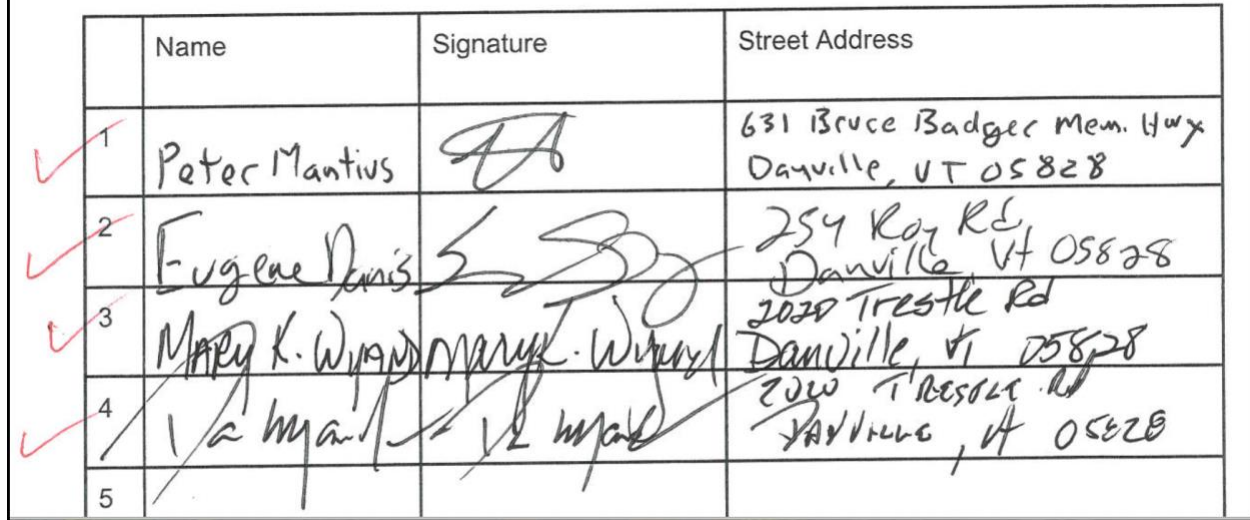 Name Signature Street Address
1 Peter Mantius 631 Bruce Badger Mem. Hwy
Danville, VT 05828
2 Eugene Danis 254 Roy Rd,
Danville, Vt 05828
3 MARY K. WYAND Mary K. Wyand 2020 Trestle Rd
Danville, Vt 05828
4 Wyand Wyand 2020 TRESTLE Rd
DANVILLE, Vt 05828
5